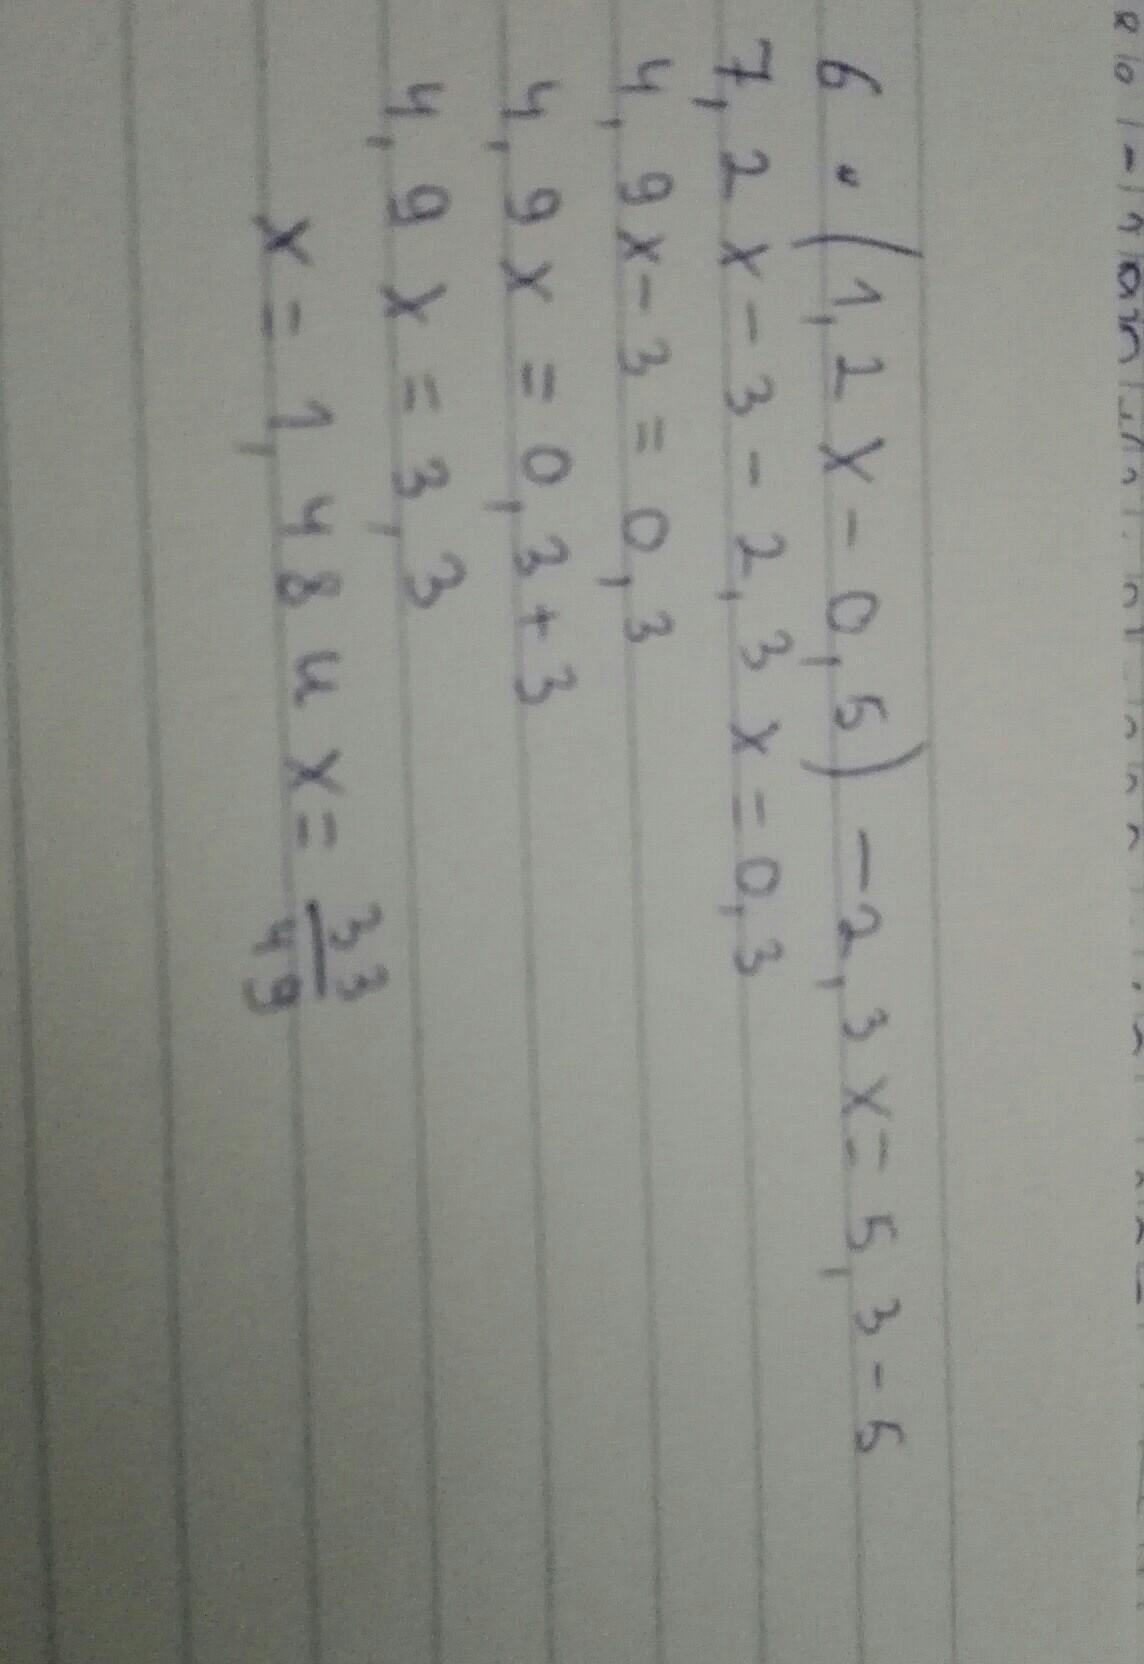 6 · (1,2x-0,5)-2,3x=5,3-5
7,2x-3-2,3x=0,3
4,9x-3=0,3
4,9x=0,3+3
4,9x=3,3
x=1,484 x=33/49